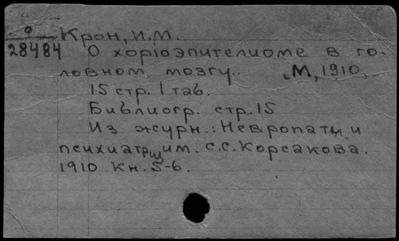 Крон, И.М.
28484 О хоріоэпителиоме в го-
ловном мозгу. М, 1910,
15 стр. 1 таб.
Библиогр. стр. 15
Из журн.: Невропат. и
психиатрии им. С.С. Корсакова.
1910 Кн. 5-6.